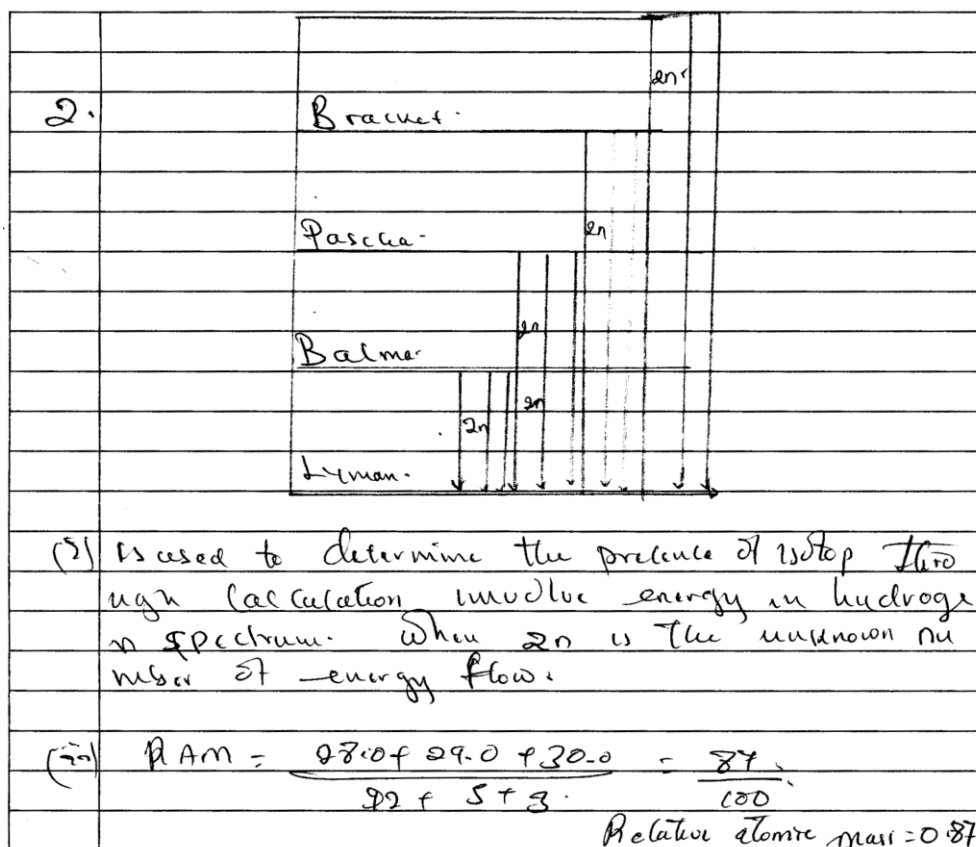 2.
Bracket.
Pascha-
Balma-
Lyman.
2n
2n
2n
2n
2n
(i) is used to determine the presence of isotop thro
ugh calculation involve energy in hydroge
n spectrum. When 2n is the unknown nu
mber of energy flow.
(ii) RAM = 28.0 + 29.0 + 30.0 = 87.
92 + 5 + 3. 100
Relative atomic mass = 0.87